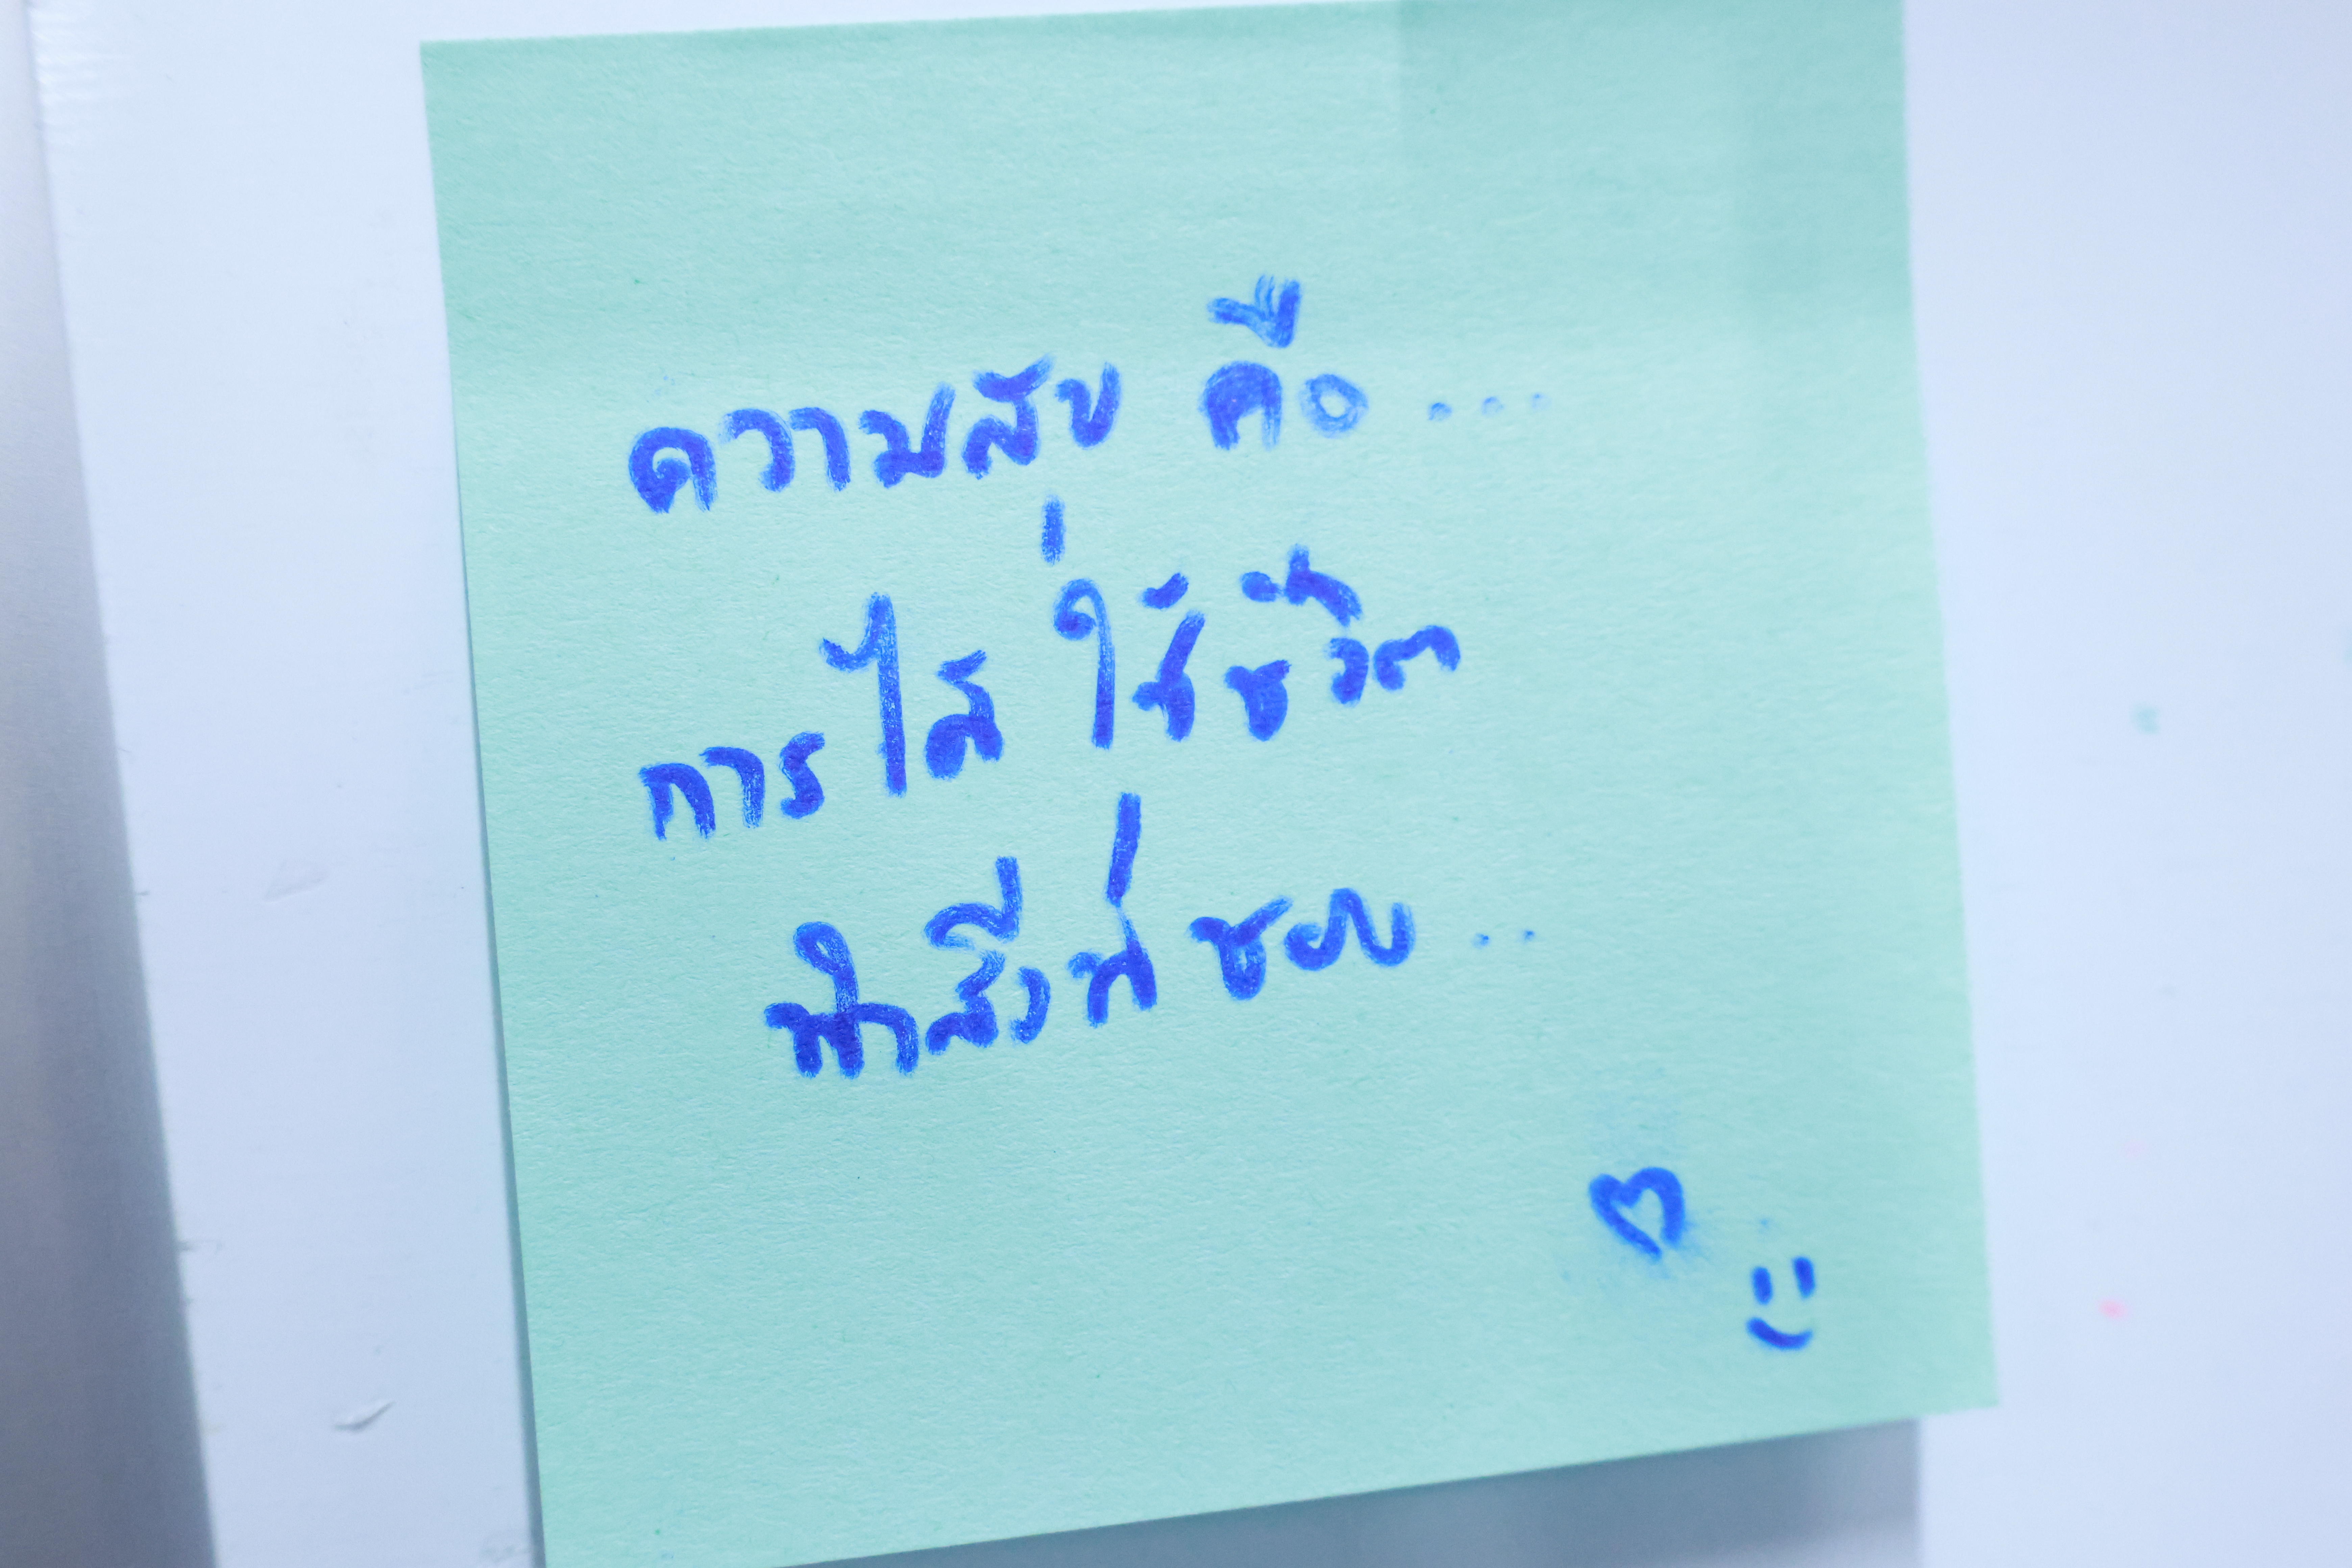 ความสุข คือ ...
การได้ ใช้ชีวิต
ทำสิ่งที่ ชอบ ..